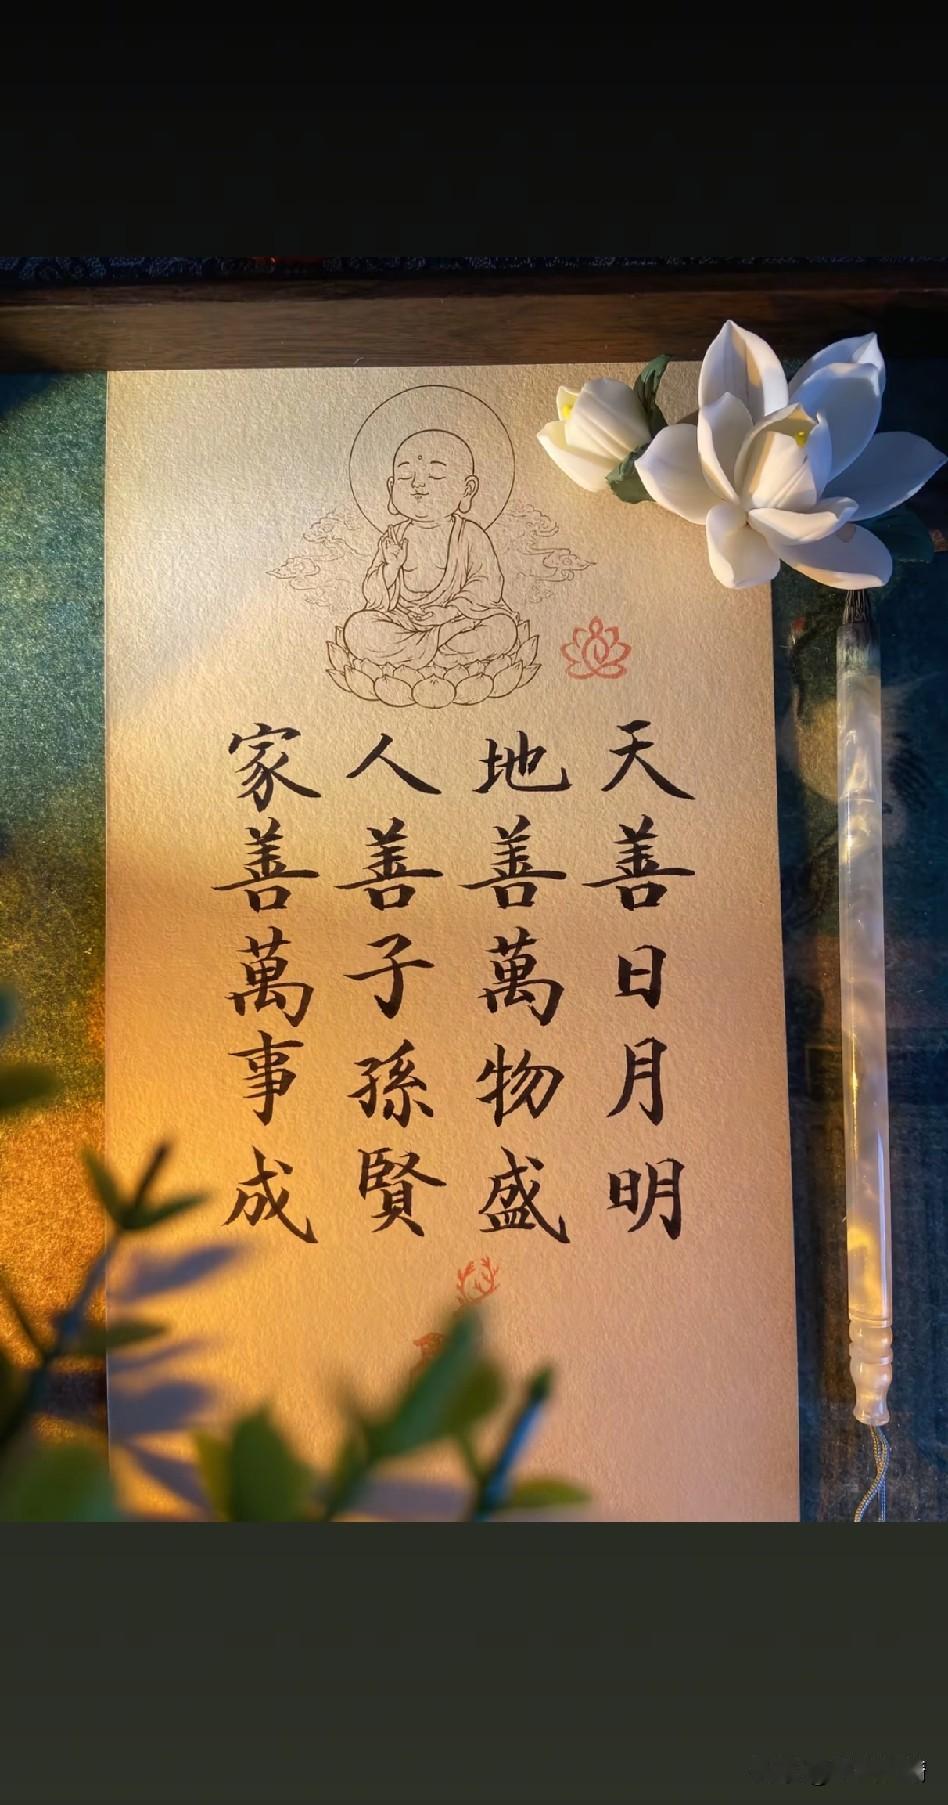 天善日月明
地善萬物盛
人善子孫賢
家善萬事成